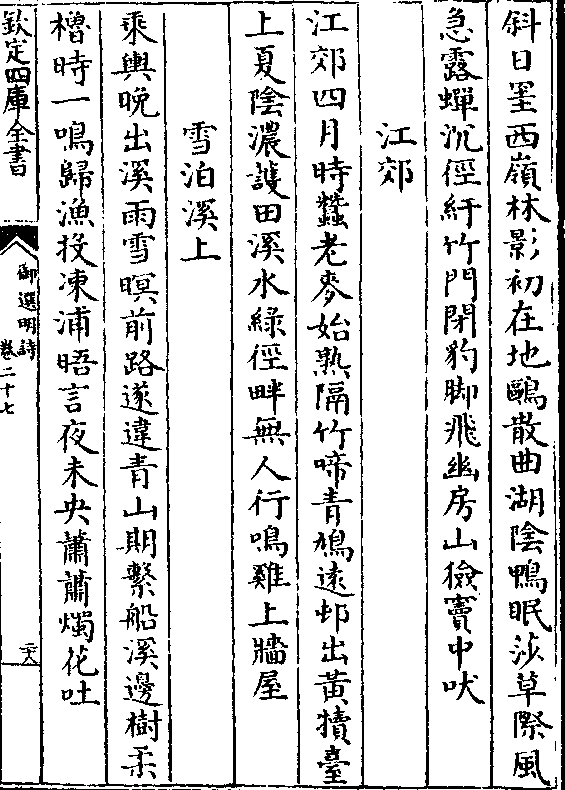 斜日墨西嶺林影初在地鷗散曲湖陰鴨眠莎草際風
急露蟬沉徑紆竹門閉豹脚飛幽房山獫竇中吠
江郊
江郊四月時蠶老麥始熟隔竹啼青鳩遠邨出黃犢臺
上夏陰濃護田溪水綠徑畔無人行鳴雞上牆屋
雪泊溪上
乘輿晚出溪雨雪暝前路遂違青山期繫船溪邊樹柔
櫓時一鳴歸漁投凍浦晤言夜未央蕭蕭燭花吐
欽定四庫全書
御選明詩
卷二十七
二六